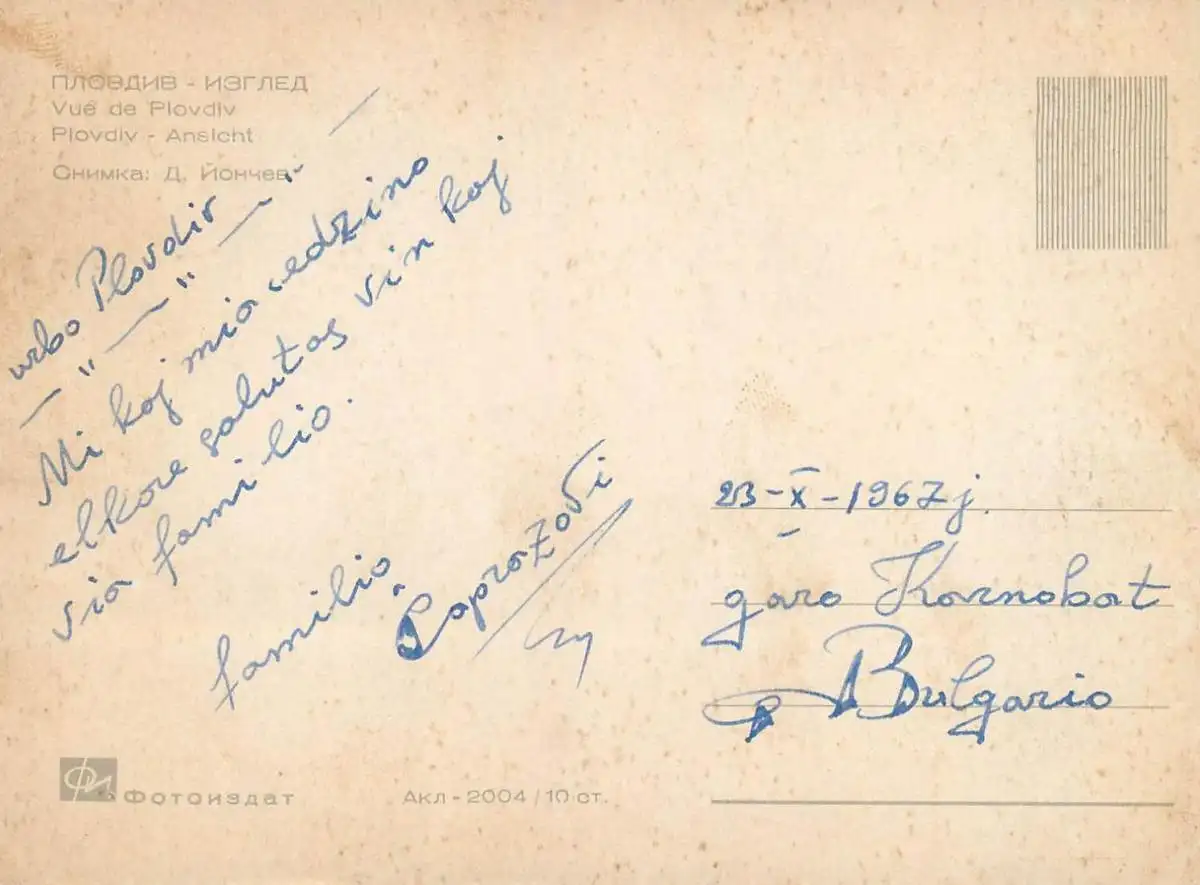 ПЛОВДИВ - ИЗГЛЕД
Vue de Plovdiv
Plovdiv - Ansicht
Снимка: Д. Йончев
urbo Plovdiv
— " — " — " —
Mi kaj mia edzino
elkore salutas vin kaj
via familio.
familio
23-X-1967 j.
garo Karnobat
Bulgario
Фотоиздат
Акл-2004/10 ст.